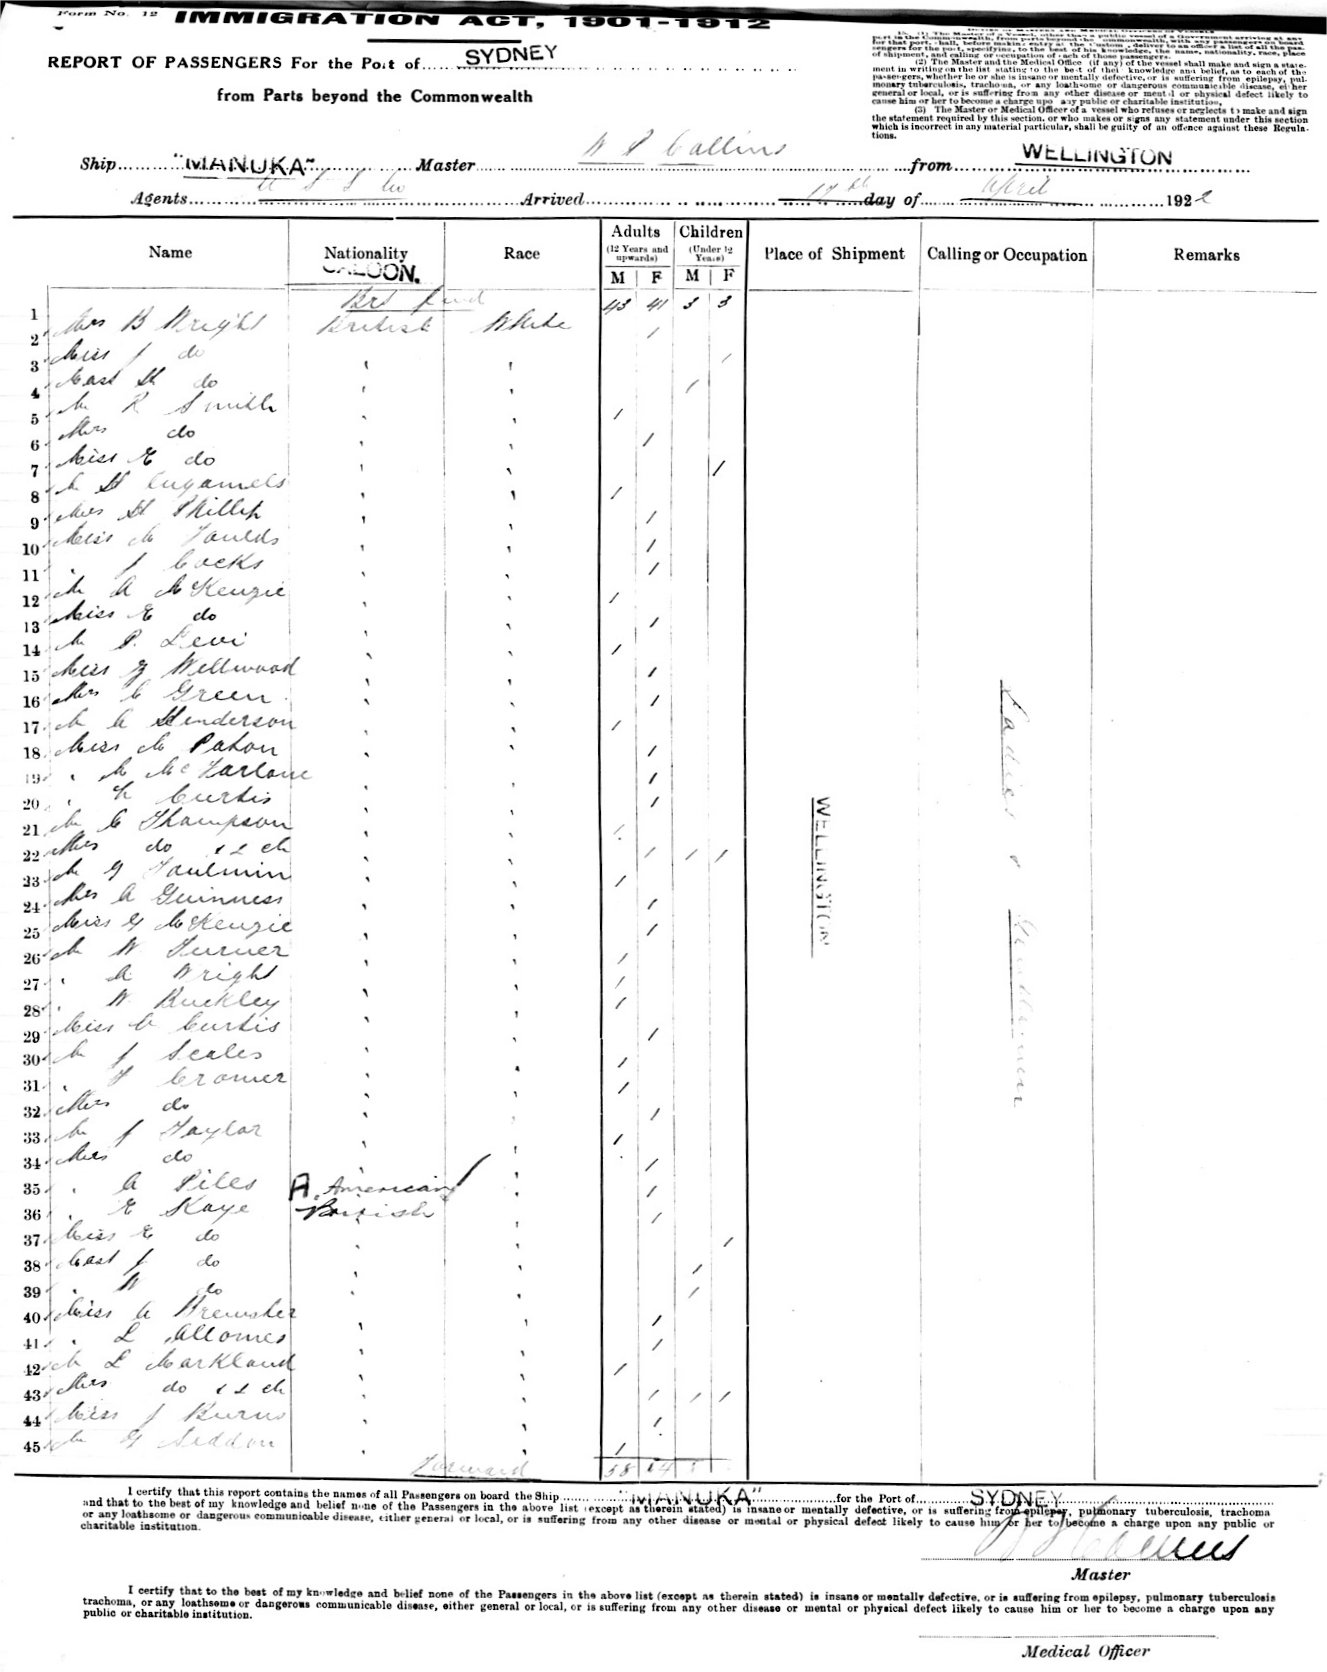 Form No. 12
IMMIGRATION ACT, 1901-1912
REPORT OF PASSENGERS For the Port of SYDNEY
from Parts beyond the Commonwealth
for that port, shall, before making entry at the Customs, deliver to an officer a list of all the pas-
sengers for the port, specifying, to the best of his knowledge, the name, nationality, race, place
of shipment, and occupation of each of those passengers.
(2) The Master and the Medical Office (if any) of the vessel shall make and sign a state-
ment in writing on the list stating to the best of their knowledge and belief, as to each of the
passengers, whether he or she is insane or mentally defective, or is suffering from epilepsy, pul-
monary tuberculosis, trachoma, or any loathsome or dangerous communicable disease, either
general or local, or is suffering from any other disease or mental or physical defect likely to
cause him or her to become a charge upon any public or charitable institution.
(3) The Master or Medical Officer of a vessel who refuses or neglects to make and sign
the statement required by this section, or who makes or signs any statement under this section
which is incorrect in any material particular, shall be guilty of an offence against these Regula-
tions.
Ship "MANUKA" Master Collins from WELLINGTON
Agents U S S Co Arrived 12th day of April 1922
Name Nationality Race Adults Children Place of Shipment Calling or Occupation Remarks
(12 Years and upwards) (Under 12 Years)
SALOON.
M F M F
Brt fwd 43 41 3 3
1 Mrs B Wright British White
2 Miss J do
3 Mast H do
4 Mr R Smith
5 Mrs do
6 Miss E do
7 Mr H Cugamels
8 Mrs H Phillip
9 Miss M Foulds
10 " J Cocks
11 Mr A McKenzie
12 Miss E do
13 Mr P. Levi
14 Miss G Wellwood
15 Mrs C Green
16 Mr A Henderson
17 Miss M Paton
18 " M McFarlane
19 " Curtis
20 Mr C Thompson
21 Mrs do & 2 ch
22 Mr G Toulmin
23 Mrs A Guinness
24 Miss G McKenzie
25 Mr W Turner
26 " A Wright
27 " W Buckley
28 Miss Curtis
29 Mr J Scales
30 " F Cromer
31 Mrs do
32 Mr J Taylor
33 Mrs do
34 " A Piles A. American
35 " E Kaye British
36 Miss E do
37 Mast J do
38 " W do
39 Miss A Brewster
40 " L Allomes
41 Mr L Markland
42 Mrs do & 2 ch
43 Miss J Burns
44 Mr G Seddon
45
WELLINGTON
Ladies & Gentlemen
Forward 58 64
I certify that this report contains the names of all Passengers on board the Ship "MANUKA" for the Port of SYDNEY
and that to the best of my knowledge and belief none of the Passengers in the above list (except as therein stated) is insane or mentally defective, or is suffering from epilepsy, pulmonary tuberculosis, trachoma
or any loathsome or dangerous communicable disease, either general or local, or is suffering from any other disease or mental or physical defect likely to cause him or her to become a charge upon any public or
charitable institution.
Master
I certify that to the best of my knowledge and belief none of the Passengers in the above list (except as therein stated) is insane or mentally defective, or is suffering from epilepsy, pulmonary tuberculosis
trachoma, or any loathsome or dangerous communicable disease, either general or local, or is suffering from any other disease or mental or physical defect likely to cause him or her to become a charge upon any
public or charitable institution.
Medical Officer